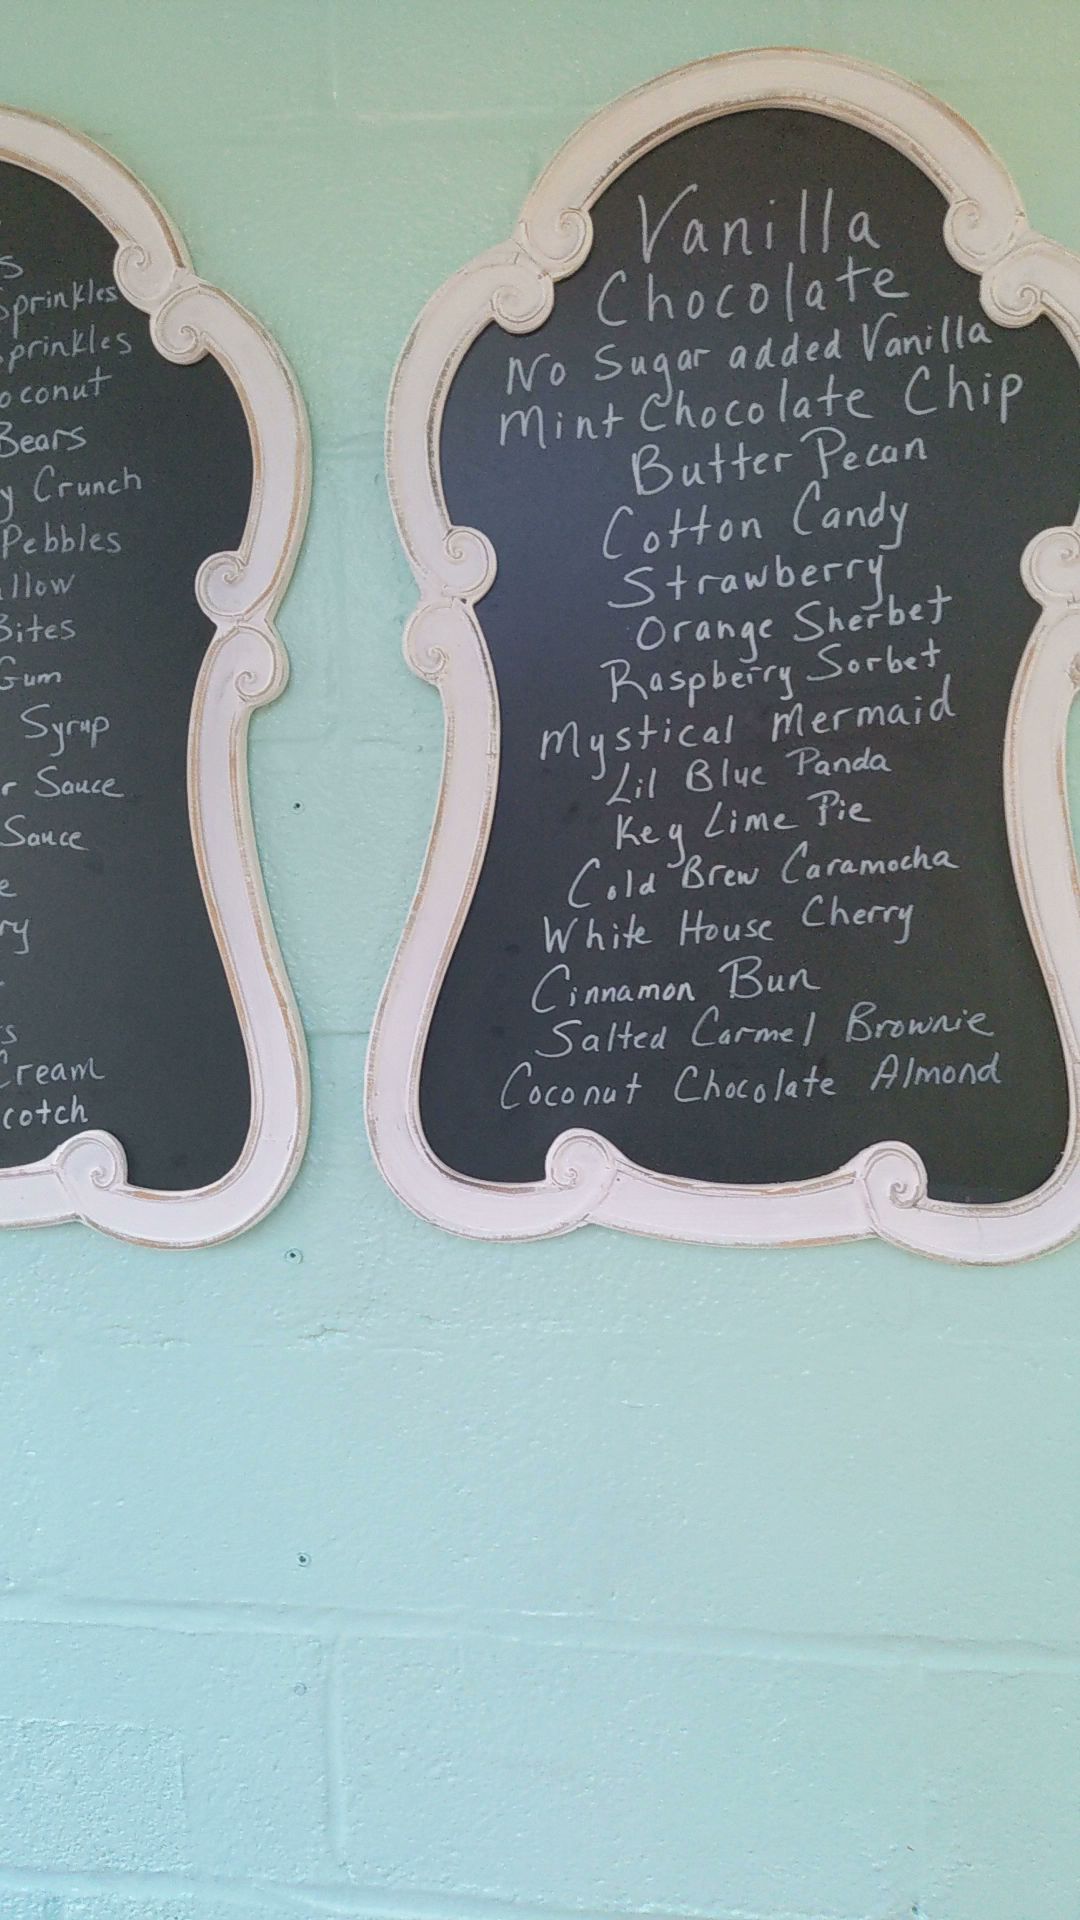 Sprinkles
Sprinkles
Bears
Crunch
Pebbles
Bites
Gum
Syrup
Sauce
Sauce
Cream
Vanilla
Chocolate
No Sugar added Vanilla
Mint Chocolate Chip
Butter Pecan
Cotton Candy
Strawberry
Orange Sherbet
Raspberry Sorbet
Mystical Mermaid
Lil Blue Panda
Key Lime Pie
Cold Brew Caramocha
White House Cherry
Cinnamon Bun
Salted Carmel Brownie
Coconut Chocolate Almond